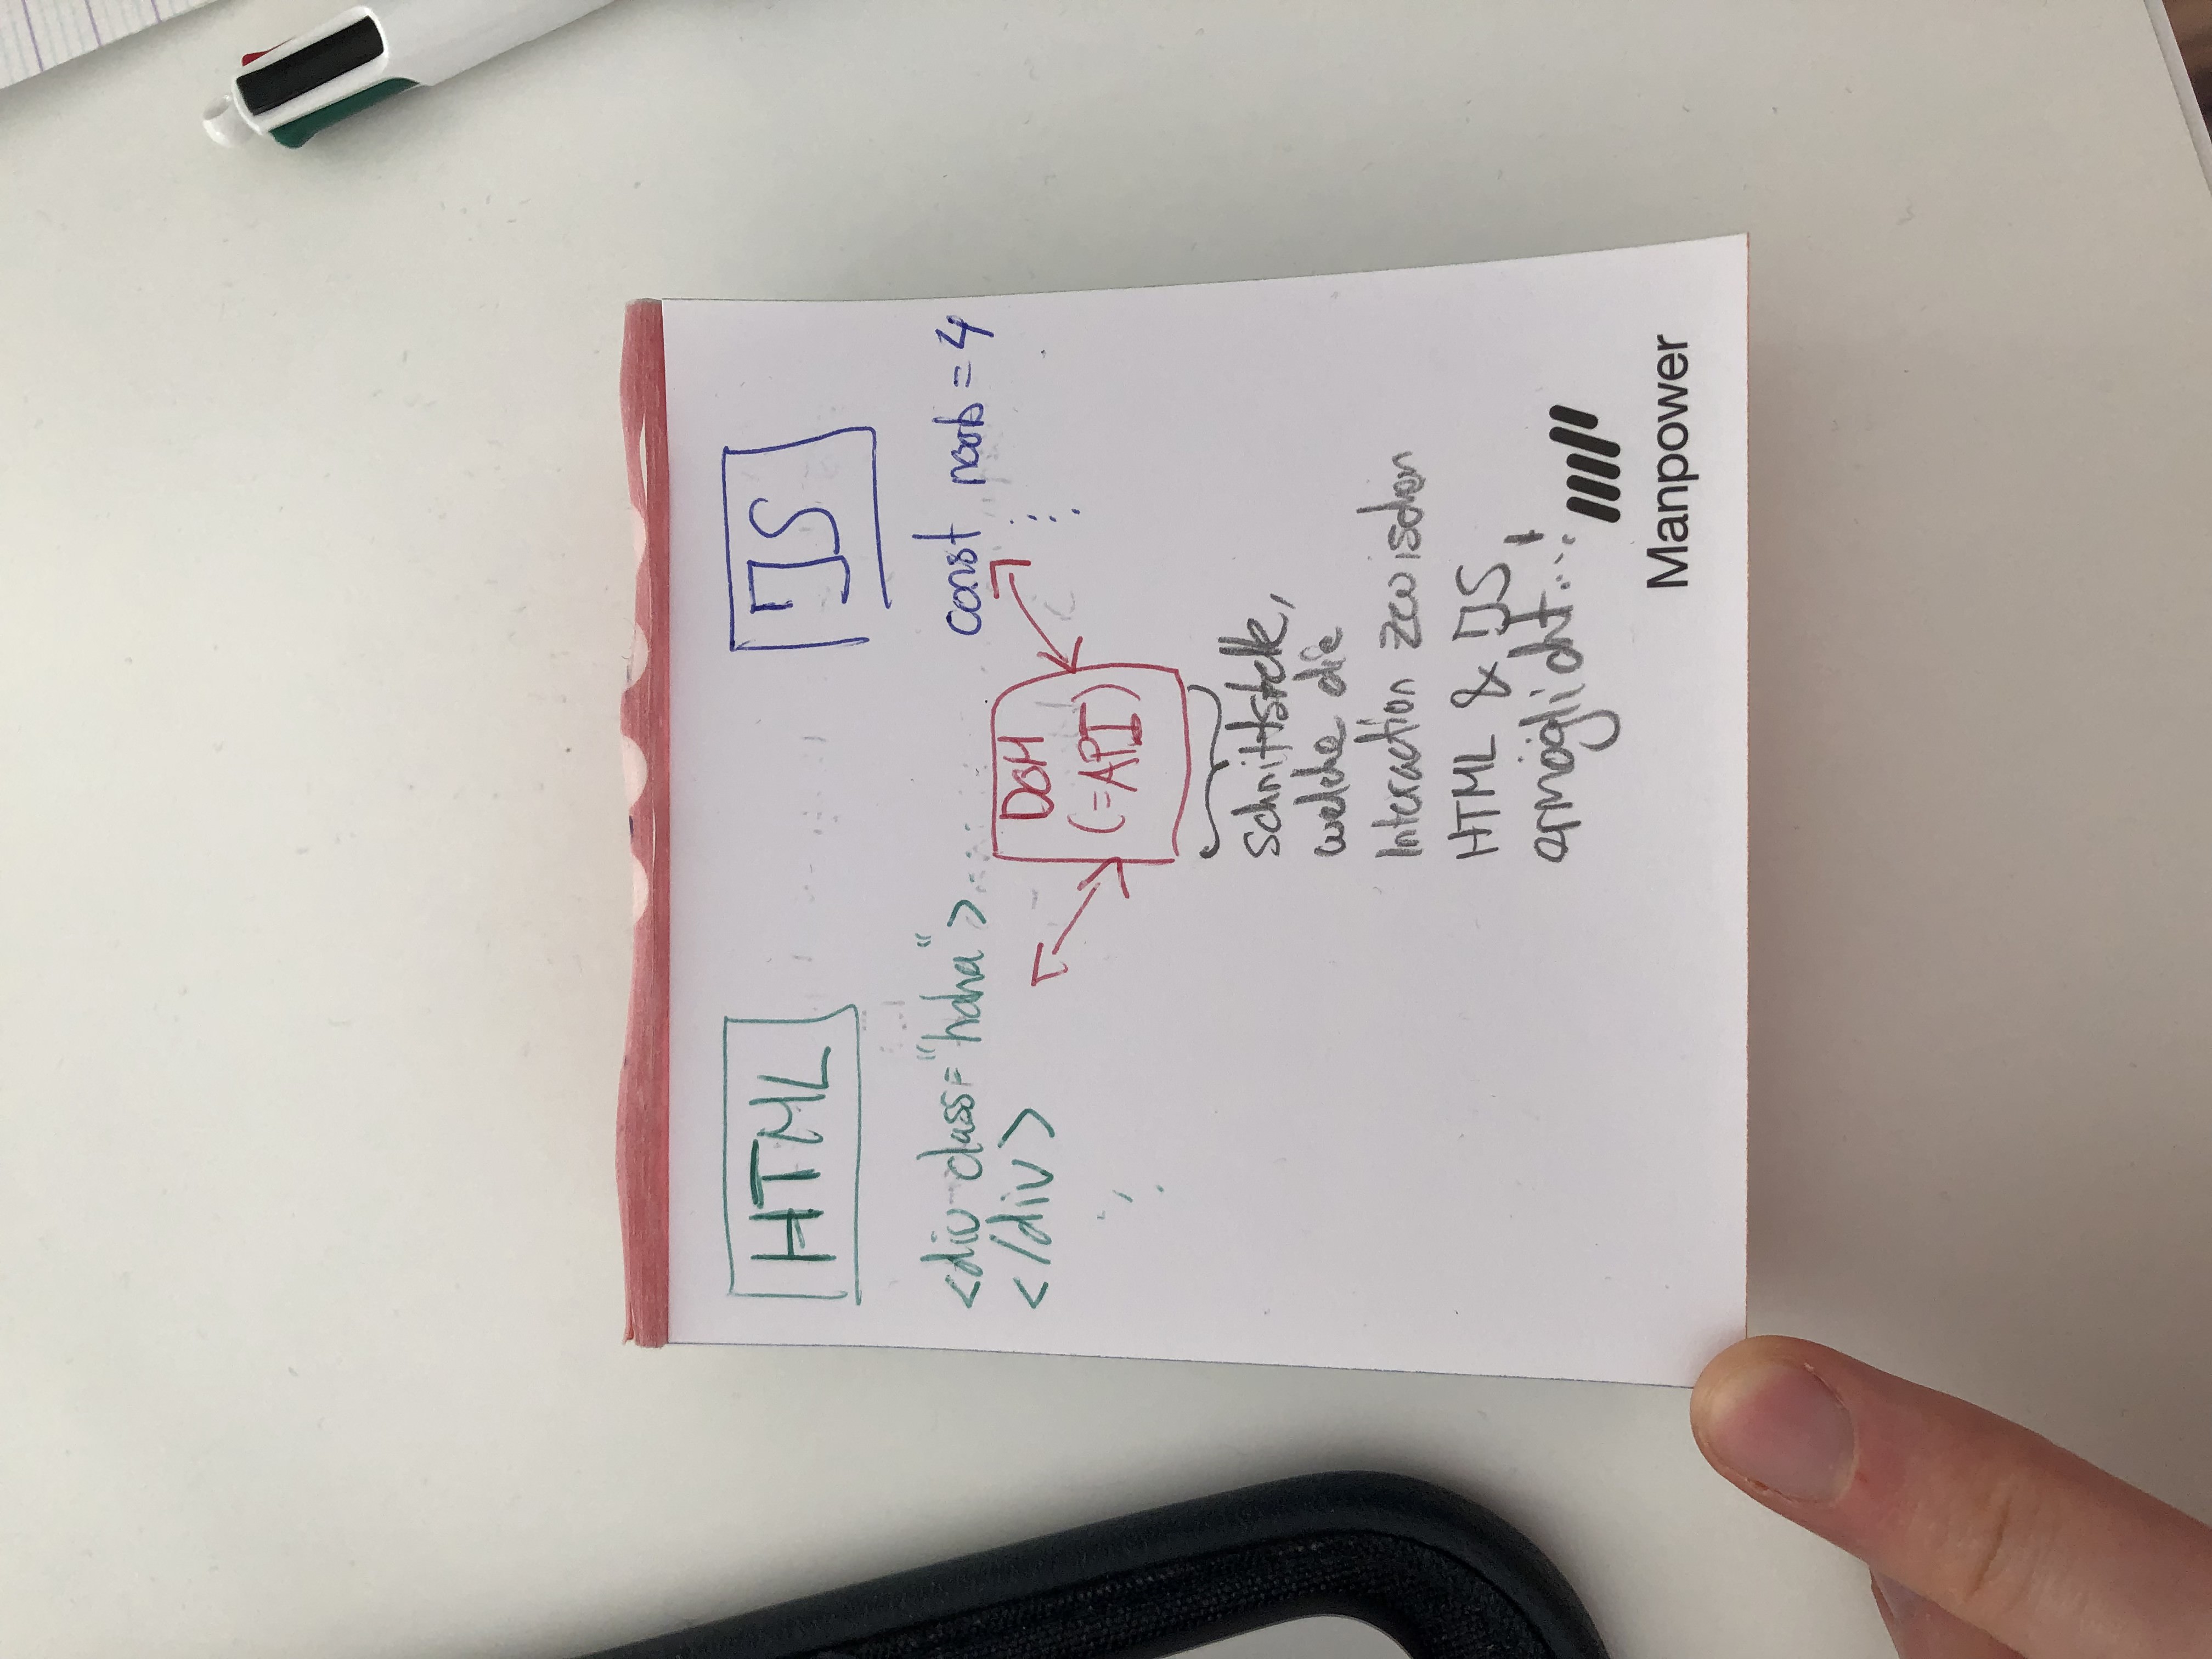 HTML
JS
<div class="haha">....
</div>
const noob = 4
DOM
(=API)
Schnittstelle,
welche die
Interaction zwischen
HTML & JS
ermöglicht...!
Manpower